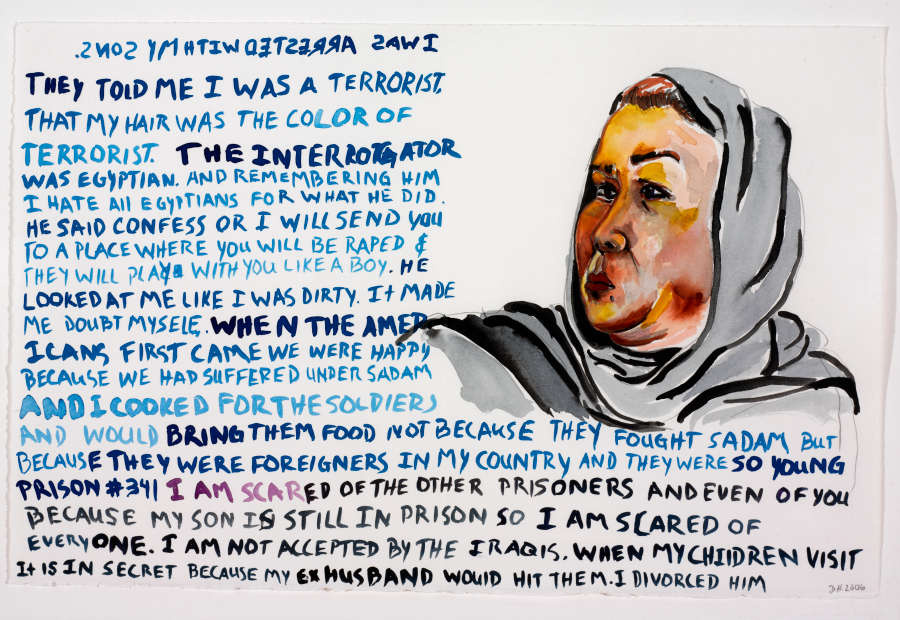 I WAS ARRESTED WITH MY SONS.
THEY TOLD ME I WAS A TERRORIST.
THAT MY HAIR WAS THE COLOR OF
TERRORIST. THE INTERROGATOR
WAS EGYPTIAN. AND REMEMBERING HIM
I HATE All EGYPTIANS FOR WHAT HE DID.
HE SAID CONFESS OR I WILL SEND YOU
TO A PLACE WHERE YOU WILL BE RAPED &
THEY WILL PLAY WITH YOU LIKE A BOY. HE
LOOKED AT ME LIKE I WAS DIRTY. It MADE
ME DOUBT MYSELF. WHEN THE AMER
ICANS FIRST CAME WE WERE HAPPY
BECAUSE WE HAD SUFFERED UNDER SADAM
AND I COOKED FOR THE SOLDIERS
AND WOULD BRING THEM FOOD NOT BECAUSE THEY FOUGHT SADAM BUT
BECAUSE THEY WERE FOREIGNERS IN MY COUNTRY AND THEY WERE SO YOUNG
PRISON #341 I AM SCARED OF THE OTHER PRISONERS AND EVEN OF YOU
BECAUSE MY SON IS STILL IN PRISON SO I AM SCARED OF
EVERYONE. I AM NOT ACCEPTED BY THE IRAQIS. WHEN MY CHIlDREN VISIT
It IS IN SECRET BECAUSE MY EX HUSBAND WOUlD HIT THEM. I DIVORCED HIM
D.H. 2006